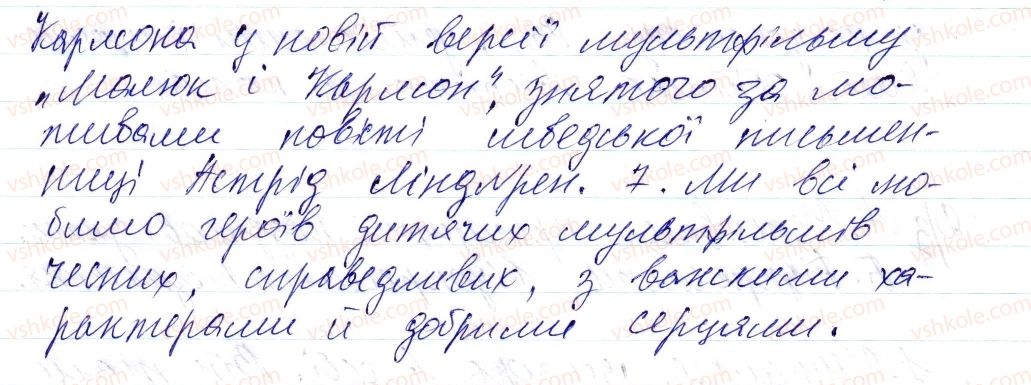 Карлсона у новій версії мультфільму
„Малюк і Карлсон", знятого за мо-
тивами повісті шведської письмен-
ниці Астрід Ліндгрен. 7. Ми всі лю-
бимо героїв дитячих мультфільмів
чесних, справедливих, з важкими ха-
рактерами й добрими серцями.